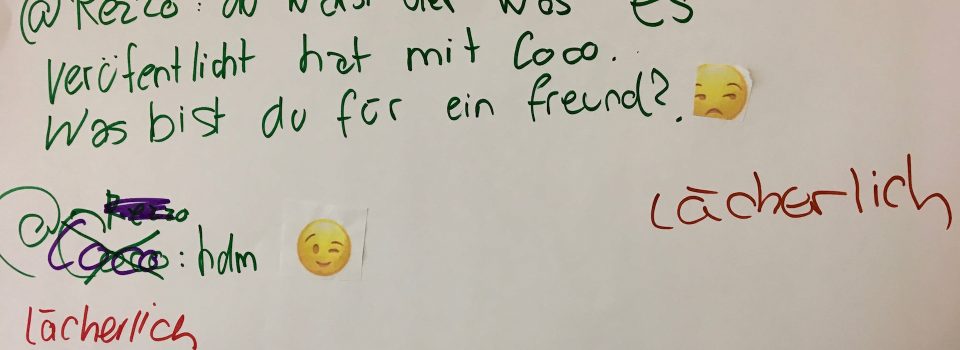 @Rezzo: du warst der was es
veröfentlicht hat mit Cooo.
Was bist du für ein freund?.
lächerlich
@ Rezzo
Cooo : hdm
lächerlich